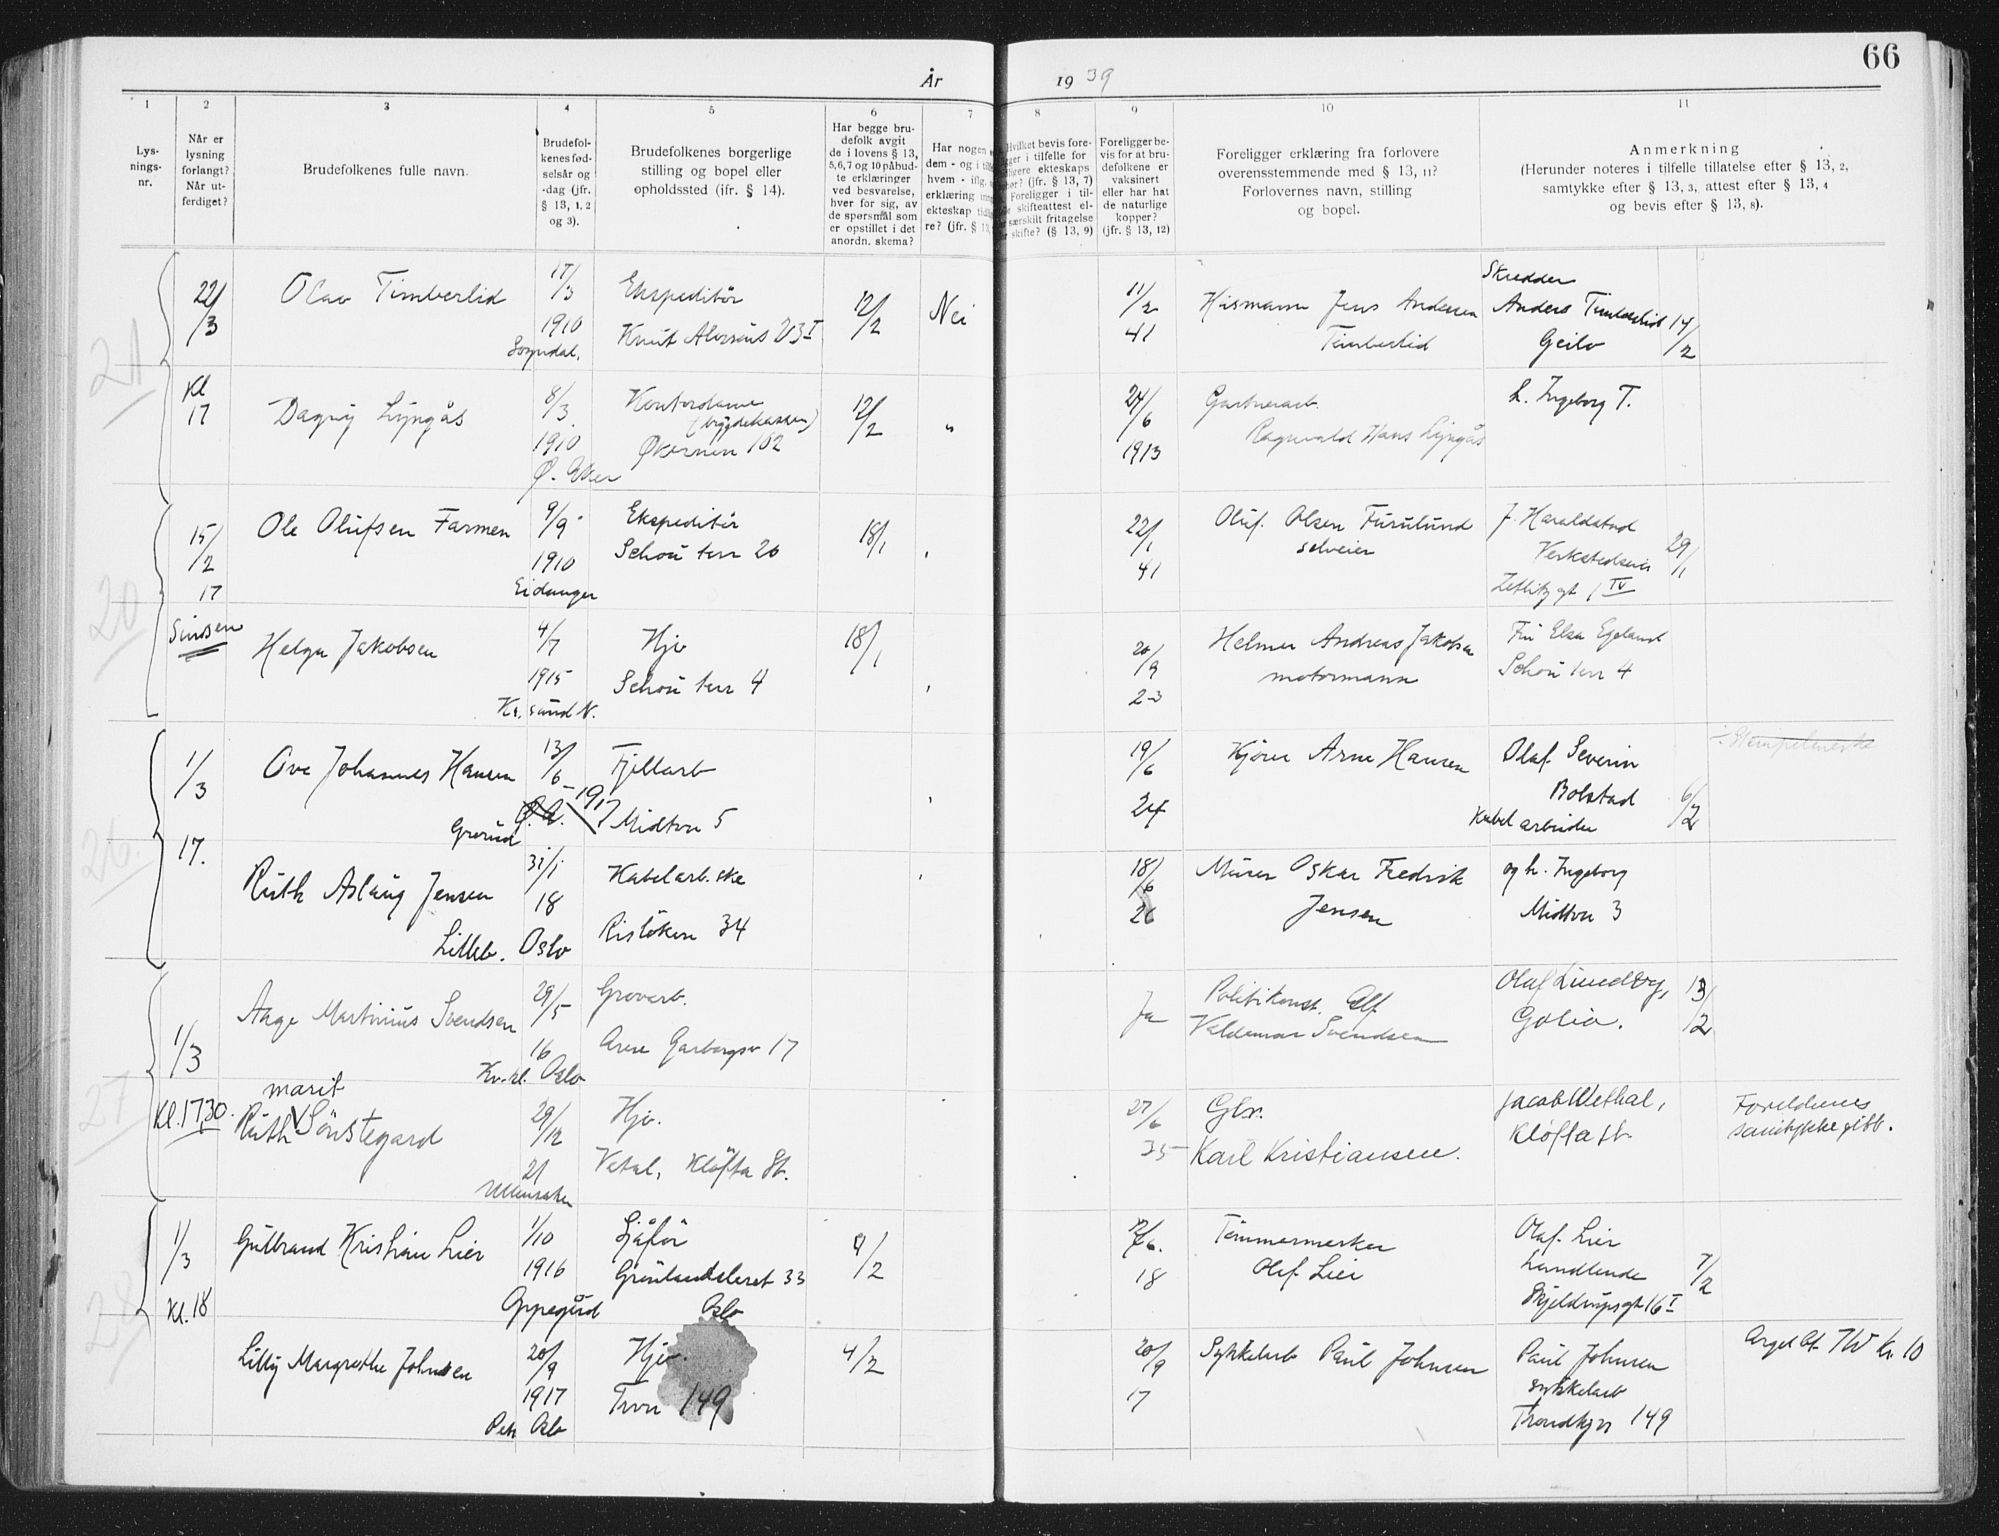 66
År 1939
1 2 3 4 5 6 7 8 9 10 11
Lys-
nings-
nr.
Når er
lysning
forlangt?
Når ut-
ferdiget?
Brudefolkenes fulle navn.
Brudefol-
kenes fød-
selsår og
-dag (jfr.
§ 13, 1, 2
og 3).
Brudefolkenes borgerlige
stilling og bopel eller
opholdssted (jfr. § 14).
Har begge bru-
defolk avgit
de i lovens § 13,
5,6,7 og 10 påbud-
te erklæringer
ved besvarelse,
hver for sig, av
de spørsmål som
er opstillet i det
anordn. skema?
Har nogen
dem - og i
hvem - ifl.
erklæring
ekteskap
re? (jfr. § 13,
Hvilket bevis fore-
ger i tilfelle for
ligere ekteskaps
hør? (jfr. § 13, 7)
Foreligger i til-
skifteattest el-
særskilt fritagelse
skifte? (§ 13, 9)
Foreligger be-
vis for at bru-
defolkene er
vaksinert
eller har hat
de naturlige
kopper?
(jfr. § 13, 12)
Foreligger erklæring fra forlovere
overensstemmende med § 13, 11?
Forlovernes navn, stilling
og bopel.
Anmerkning
(Herunder noteres i tilfelle tillatelse efter § 13, 2,
samtykke efter § 13, 3, attest efter § 13, 4
og bevis efter § 13, 8).
21
22/3
Kl 17
Olav Timberlid
17/3
1910
Sogndal.
Ekspeditør
12/2
Nei
11/2
41
Husmann Jens Andersen
Timberlid
Skredder
Anders Timberlid
Geilo
14/2
Dagny Lyngås
8/3
1910
Ø. Eker
Kontordame
Økernvn 102
12/2
"
24/6
1913
Gartnerarb.
Ragnvald Hans Lyngås
h. Ingeborg T.
20
15/2
17
Sinsen
Ole Olufsen Farmen
9/9
1910
Eidanger
Ekspeditør
Schou terr 20
18/1
22/1
41
Oluf Olsen Furulund
selveier
J. Haraldstad
29/1
Helga Jakobsen
4/7
1915
Kr. sund N.
Hjv
Schou terr 4
18/1
20/9
23
Helmer Andreas Jakobsen
motormann
Fru Elsa Egeland
Schou terr 4
26.
1/3
17.
Ove Johannes Hansen
13/6 - 1917
Grorud
Fjellarb
Midtvn 5
19/6
24
Kjører Arne Hansen
Olaf Severin
Bolstad
Kabelarbeider
6/2
Ruth Aslaug Jensen
31/1
18
Lilleb. Oslo
Kabelarb.ske
Risløkken 34
18/6
26
Murer Oskar Fredrik
Jensen
og h. Ingeborg
Midtvn 3
27
1/3
Kl. 17,30.
Aage Martinius Svendsen
29/5
16
Oslo
Grovarb.
Arne Garborgsv 17
Ja
Politikonst. Alf
Valdemar Svendsen
Olaf Lundby,
Golia.
13/2
marit
Ruth V Sønstegard
29/12
21
Ullensaker
Hjv.
Vetal, Kløfta St.
27/6
35
Gbr.
Karl Kristiansen.
Jacob Wethal,
Kløfta st.
Foreldrenes
samtykke gitt.
28
1/3
Kl. 18
Gulbrand Kristian Lier
1/10
1916
Oppegård
Sjåfør
Grønlandsleret 33
Oslo
9/2
18
Tømmermerker
Olaf Lier
Olaf Lier
Lundlende
Skjeldrupsgt 16 I
7/2
Lilly Margrethe Johnsen
20/9
1917
Petr. Oslo
Hjv.
Trvn 149
4/2
20/9
17
Sykkelarb Paul Johnsen
Paul Johnsen
sykkelarb
Trondhjv 149
Kr. 10